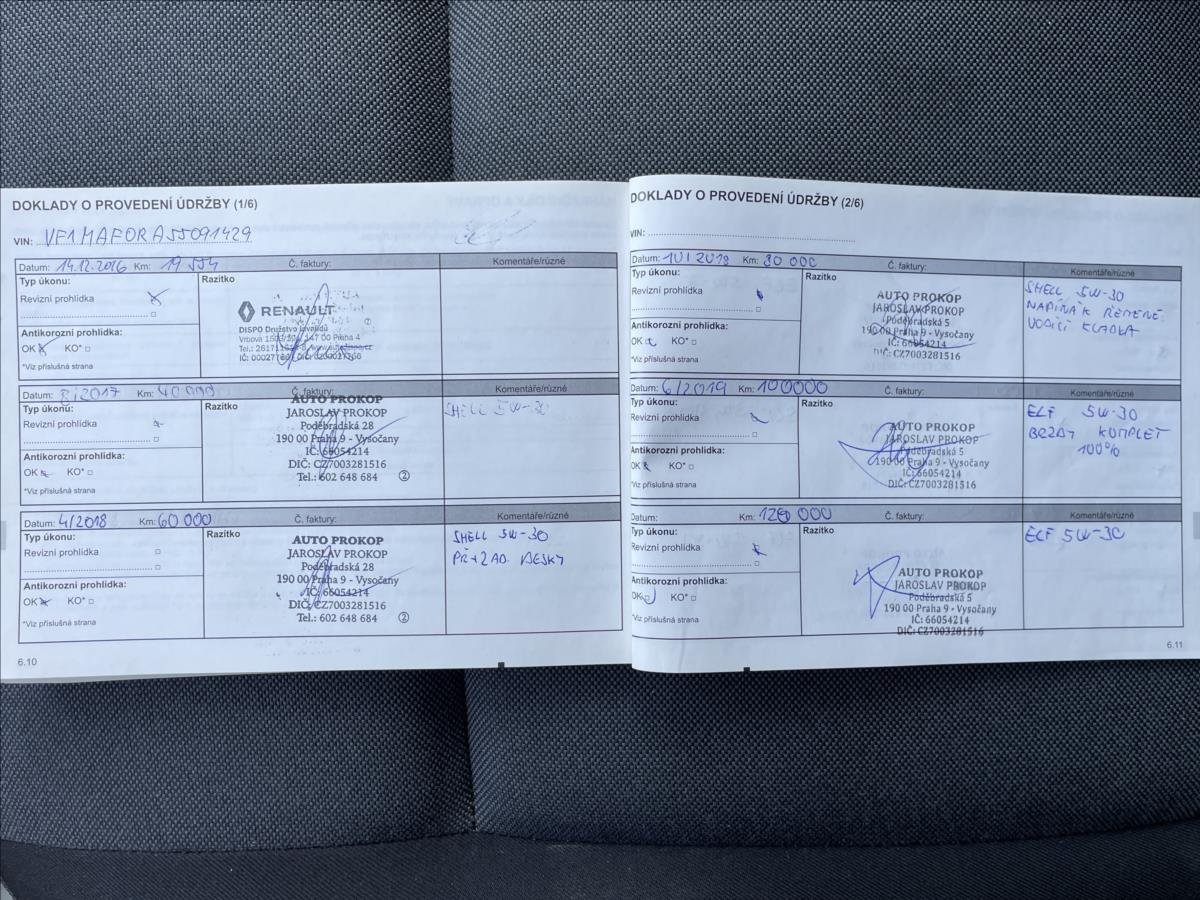 DOKLADY O PROVEDENÍ ÚDRŽBY (1/6)
VIN: VF1MAF0RA55091429
Datum: 14.12.2016 Km: 19 554 Č. faktury: Komentáře/různé
Typ úkonu: Razítko
Revizní prohlídka
RENAULT
DISPO Družstvo invalidů
Antikorozní prohlídka:
OK KO*
*Viz příslušná strana
Datum: 8/2017 Km: 40 000 Č. faktury: Komentáře/různé
Typ úkonu: Razítko
Revizní prohlídka
Antikorozní prohlídka:
OK KO*
*Viz příslušná strana
AUTO PROKOP
JAROSLAV PROKOP
Poděbradská 28
190 00 Praha 9 - Vysočany
IČ: 66054214
DIČ: CZ7003281516
Tel.: 602 648 684 2
SHELL 5W-30
Datum: 4/2018 Km: 60 000 Č. faktury: Komentáře/různé
Typ úkonu: Razítko
Revizní prohlídka
Antikorozní prohlídka:
OK KO*
*Viz příslušná strana
AUTO PROKOP
JAROSLAV PROKOP
Poděbradská 28
190 00 Praha 9 - Vysočany
IČ: 66054214
DIČ: CZ7003281516
Tel.: 602 648 684 2
SHELL 5W-30
PŘ+ZAD. DESKY
6.10
DOKLADY O PROVEDENÍ ÚDRŽBY (2/6)
VIN:
Datum: 10/2018 Km: 80 000 Č. faktury: Komentáře/různé
Typ úkonu: Razítko
Revizní prohlídka
Antikorozní prohlídka:
OK KO*
*Viz příslušná strana
AUTO PROKOP
JAROSLAV PROKOP
Poděbradská 5
190 00 Praha 9 - Vysočany
IČ: 66054214
DIČ: CZ7003281516
SHELL 5W-30
NAPÍNÁK ŘEMENE
VODÍCÍ KLADKA
Datum: 6/2019 Km: 100000 Č. faktury: Komentáře/různé
Typ úkonu: Razítko
Revizní prohlídka
Antikorozní prohlídka:
OK KO*
*Viz příslušná strana
AUTO PROKOP
JAROSLAV PROKOP
Poděbradská 5
190 00 Praha 9 - Vysočany
IČ: 66054214
DIČ: CZ7003281516
ELF 5W-30
BRZDY KOMPLET
100%
Datum: Km: 120 000 Č. faktury: Komentáře/různé
Typ úkonu: Razítko
Revizní prohlídka
Antikorozní prohlídka:
OK KO*
*Viz příslušná strana
AUTO PROKOP
JAROSLAV PROKOP
Poděbradská 5
190 00 Praha 9 - Vysočany
IČ: 66054214
DIČ: CZ7003281516
ELF 5W-30
6.11